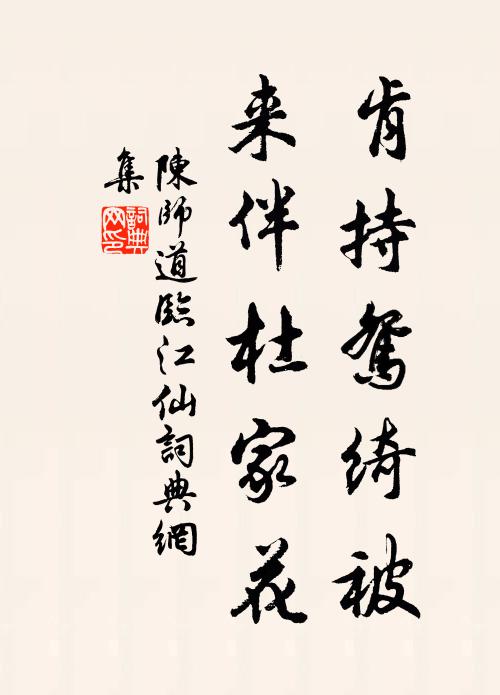 肯持鴛綺被
来伴杜家花
陳師道臨江仙詞典網
集
詞典网印